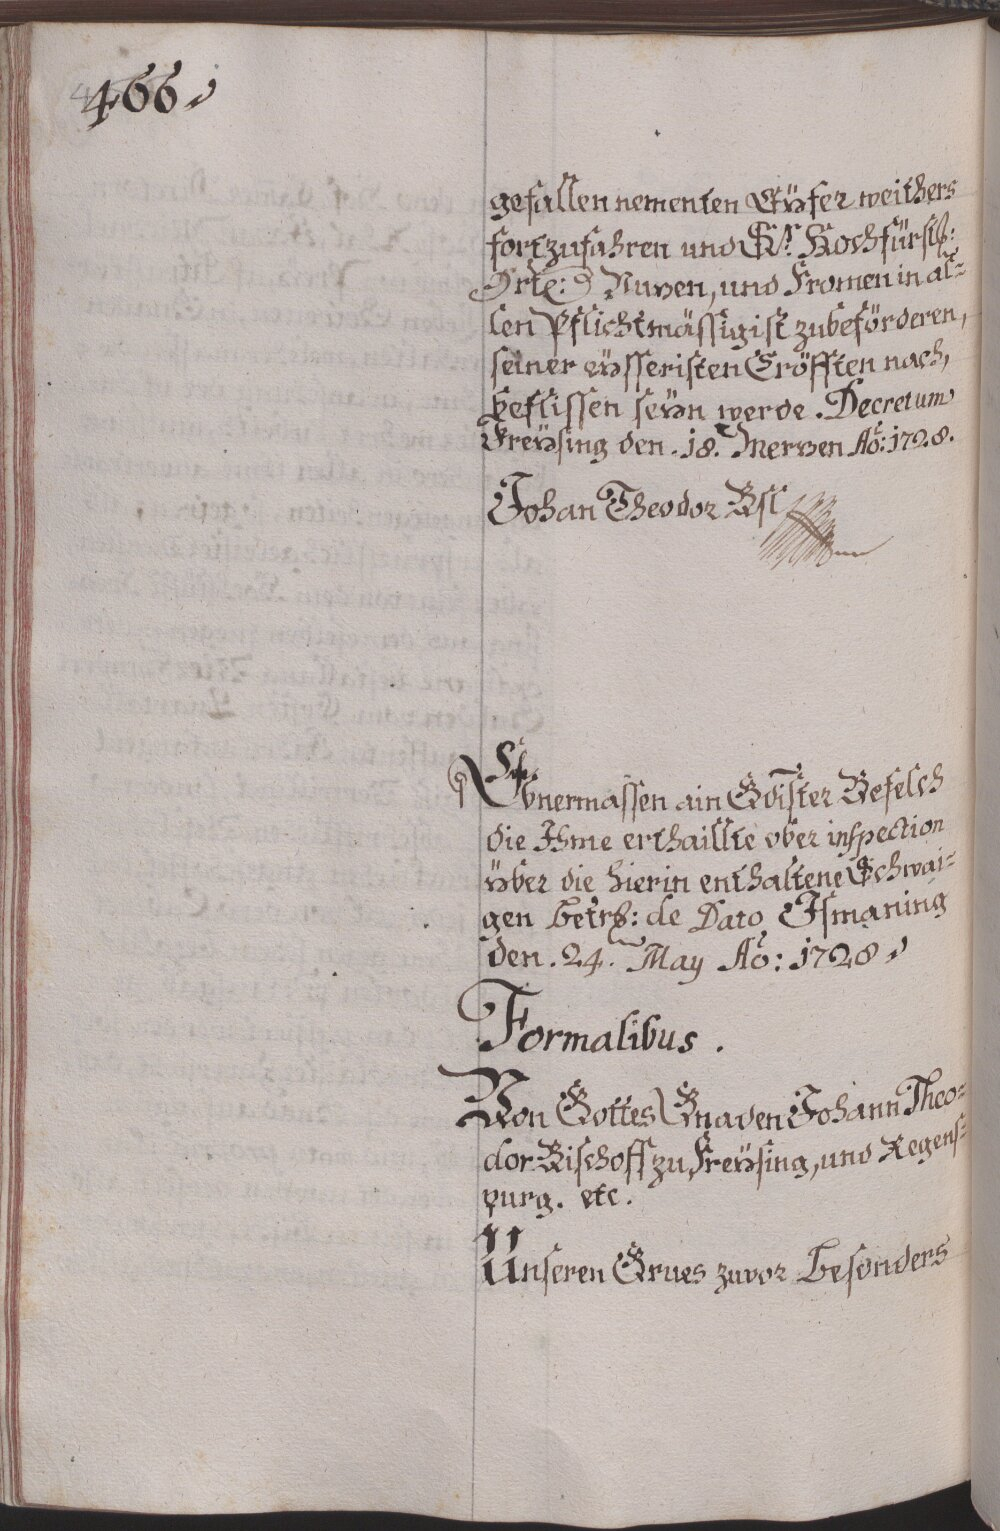 466.
gefallen nementen Eÿfer weithers
fortzufahren und Sr. Hochfürstl:
Drtl: Nuzen, und Fromen in al-
len Pflichtmässigist zubeförderen,
seiner eüsseristen Cröfften nach,
beflissen seÿn werde. Decretum
Freÿsing den. 18. Merzen Aõ: 1728.
Johan Theodor Bsf
Ebnermassen ain Gdister Befelch
die Ihme erthaillte ober inspection
über die hierin enthaltene Schwai-
gen betrf: de Dato Ismaning
den. 24. May Aõ: 1728.
Formalibus.
Von Gottes Gnaden Johann Theo-
dor Bischoff zu Freÿsing, und Regens-
purg. etc.
Unseren Grues zuvor besonders